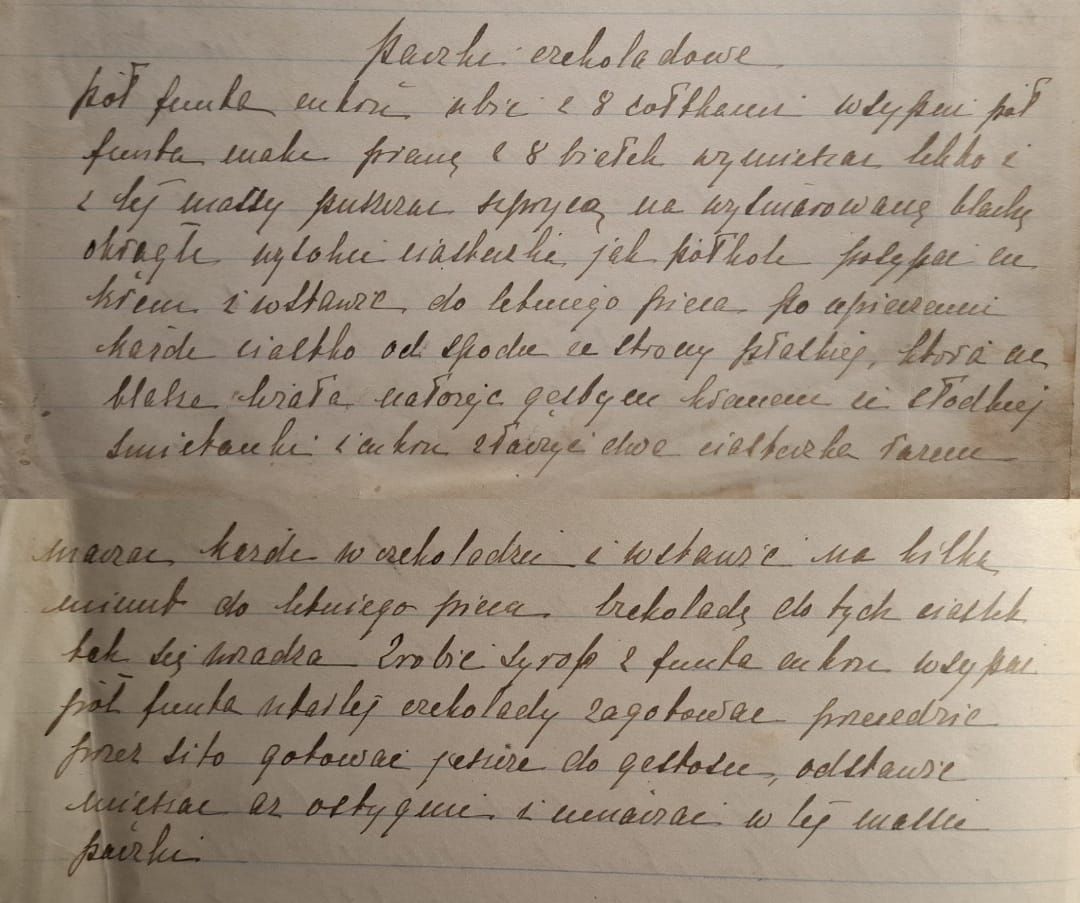 Pączki czekoladowe
pół funta cukru ubić z 8 żółtkami wsypać pół
funta mąki pianę z 8 białek wymieszać lekko i
z tej massy puszczać szprycą na wysmarowaną blachę
okrągłe wysokie ciasteczki jak półkole posypać cu
krem i wstawić do letniego pieca po upieczeniu
każde ciastko od spodu ze strony płaskiej, która na
blasze leżała nałożyć gęstym kremem ze słodkiej
śmietanki i cukru złączyć dwa ciasteczka razem
maczać każde w czekoladzie i wstawić na kilka
minut do letniego pieca. Czekoladę do tych ciastek
tak się urządza Zrobić syrop z funta cukru wsypać
pół funta utartej czekolady zagotować przecedzić
przez sito gotować jeszcze do gęstości, odstawić
mieszać aż ostygnie i umaczać w tej massie
pączki